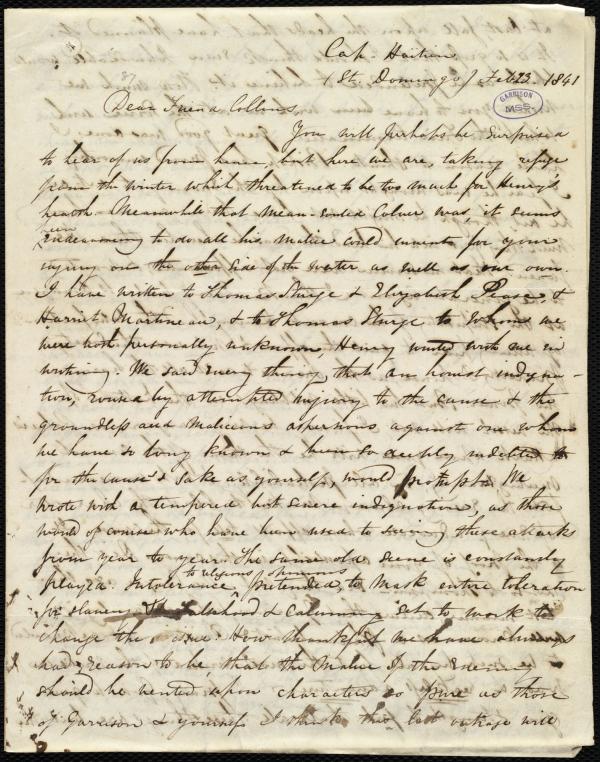 Cap-Haitien
(St. Domingo) Feb 23. 1841
GARRISON
MSS.
Dear Friend Collins,
You will perhaps be surprised
to hear of us from hence, but here we are, taking refuge
from the winter which threatened to be too much for Henry's
health. Meanwhile that mean-souled Colver was, it seems
endeavouring to do all his malice could invent for your
injury on the other side of the water as well as our own.
I have written to Thomas Sturge & Elizabeth Pease, &
Harriet Martineau, & to Thomas Sturge to whom we
were both personally unknown, Henry united with me in
writing. We said every thing that an honest indigna-
tion, roused by attempted injury to the cause & the
groundless and malicious aspersions against one whom
we have so long known & been so deeply indebted to
for the cause's sake as yourself, would prompt. We
wrote with a tempered but severe indignation, as those
would of course who have been used to seeing these attacks
from year to year. The same old scene is constantly
played. Intolerance to religious opinions pretended, to mask entire toleration
for slavery. Falsehood & Calumny set to work to
change the issue. How thankful we have always
had reason to be, that the malice of the Enemy
should be vented upon characters so pure as those
of Garrison & yourself. I think this last outrage will